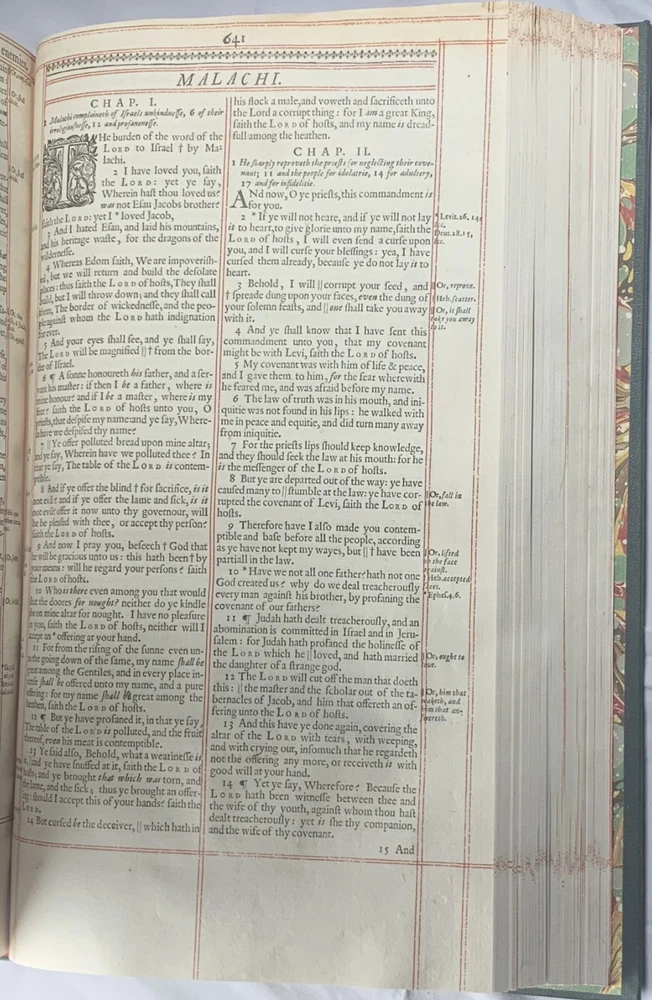 641
MALACHI.
CHAP. I.
1 Malachi complaineth of Israels unkindnesse, 6 of their
irreligiousnesse, 12 and profanenesse.
THe burden of the word of the
LORD to Israel † by Ma-
lachi.
2 I have loved you, saith
the LORD: yet ye say,
Wherein hast thou loved us?
was not Esau Jacobs brother?
saith the LORD: yet I * loved Jacob,
3 And I hated Esau, and laid his mountains,
and his heritage waste, for the dragons of the
wildernesse.
4 Whereas Edom saith, We are impoverish-
ed, but we will return and build the desolate
places: thus saith the LORD of hosts, They shall
build, but I will throw down; and they shall call
them, The border of wickednesse, and the peo-
ple against whom the LORD hath indignation
for ever.
5 And your eyes shall see, and ye shall say,
The LORD will be magnified || † from the bor-
der of Israel.
6 ¶ A sonne honoureth his father, and a ser-
vant his master: if then I be a father, where is
mine honour? and if I be a master, where is my
fear? saith the LORD of hosts unto you, O
priests, that despise my name: and ye say, Where-
in have we despised thy name?
7 || Ye offer polluted bread upon mine altar;
and ye say, Wherein have we polluted thee? In
that ye say, The table of the LORD is contem-
ptible.
8 And if ye offer the blind † for sacrifice, is it
not evil? and if ye offer the lame and sick, is it
not evil? offer it now unto thy governour, will
he be pleased with thee, or accept thy person?
saith the LORD of hosts.
9 And now I pray you, beseech † God that
he will be gracious unto us: this hath been † by
your means: will he regard your persons? saith
the LORD of hosts.
10 Who is there even among you that would
shut the doores for nought? neither do ye kindle
fire on mine altar for nought. I have no pleasure
in you, saith the LORD of hosts, neither will I
accept an * offering at your hand.
11 For from the rising of the sunne even un-
to the going down of the same, my name shall be
great among the Gentiles, and in every place in-
cense shall be offered unto my name, and a pure
offering: for my name shall be great among the
heathen, saith the LORD of hosts.
12 ¶ But ye have profaned it, in that ye say,
The table of the LORD is polluted, and the fruit
thereof, even his meat is contemptible.
13 Ye said also, Behold, what a wearinesse is
it, and ye have snuffed at it, saith the LORD of
hosts; and ye brought that which was torn, and
the lame, and the sick; thus ye brought an offer-
ing: should I accept this of your hands? saith the
LORD.
14 But cursed be the deceiver, || which hath in
his flock a male, and voweth and sacrificeth unto
the Lord a corrupt thing: for I am a great King,
saith the LORD of hosts, and my name is dread-
full among the heathen.
CHAP. II.
1 He sharply reproveth the priests for neglecting their cove-
nant; 11 and the people for idolatrie, 14 for adultery,
17 and for infidelitie.
ANd now, O ye priests, this commandment is
for you.
2 * If ye will not heare, and if ye will not lay
it to heart, to give glorie unto my name, saith the
LORD of hosts, I will even send a curse upon
you, and I will curse your blessings: yea, I have
cursed them already, because ye do not lay it to
heart.
3 Behold, I will || corrupt your seed, and
† spreade dung upon your faces, even the dung of
your solemn feasts, and || one shall take you away
with it.
4 And ye shall know that I have sent this
commandment unto you, that my covenant
might be with Levi, saith the LORD of hosts.
5 My covenant was with him of life & peace,
and I gave them to him, for the fear wherewith
he feared me, and was afraid before my name.
6 The law of truth was in his mouth, and ini-
quitie was not found in his lips: he walked with
me in peace and equitie, and did turn many away
from iniquitie.
7 For the priests lips should keep knowledge,
and they should seek the law at his mouth: for he
is the messenger of the LORD of hosts.
8 But ye are departed out of the way: ye have
caused many to || stumble at the law: ye have cor-
rupted the covenant of Levi, saith the LORD of
hosts.
9 Therefore have I also made you contem-
ptible and base before all the people, according
as ye have not kept my wayes, but || † have been
partiall in the law.
10 * Have we not all one father? hath not one
God created us? why do we deal treacherously
every man against his brother, by profaning the
covenant of our fathers?
11 ¶ Judah hath dealt treacherously, and an
abomination is committed in Israel and in Jeru-
salem: for Judah hath profaned the holinesse of
the LORD which he || loved, and hath married
the daughter of a strange god.
12 The LORD will cut off the man that doeth
this: || the master and the scholar out of the ta-
bernacles of Jacob, and him that offereth an of-
fering unto the LORD of hosts.
13 And this have ye done again, covering the
altar of the LORD with tears, with weeping,
and with crying out, insomuch that he regardeth
not the offering any more, or receiveth it with
good will at your hand.
14 ¶ Yet ye say, Wherefore? Because the
LORD hath been witnesse between thee and
the wife of thy youth, against whom thou hast
dealt treacherously: yet is she thy companion,
and the wife of thy covenant.
15 And
* Levit. 26. 14,
&c.
Deut. 28. 15,
&c.
|| Or, reprove.
† Heb. scatter.
|| Or, it shall
take you away
to it.
|| Or, fall in
the law.
|| Or, lifted
up the face
against.
† Heb. accepted
faces.
* Ephes. 4. 6.
|| Or, ought to
love.
|| Or, him that
waketh, and
him that an-
swereth.